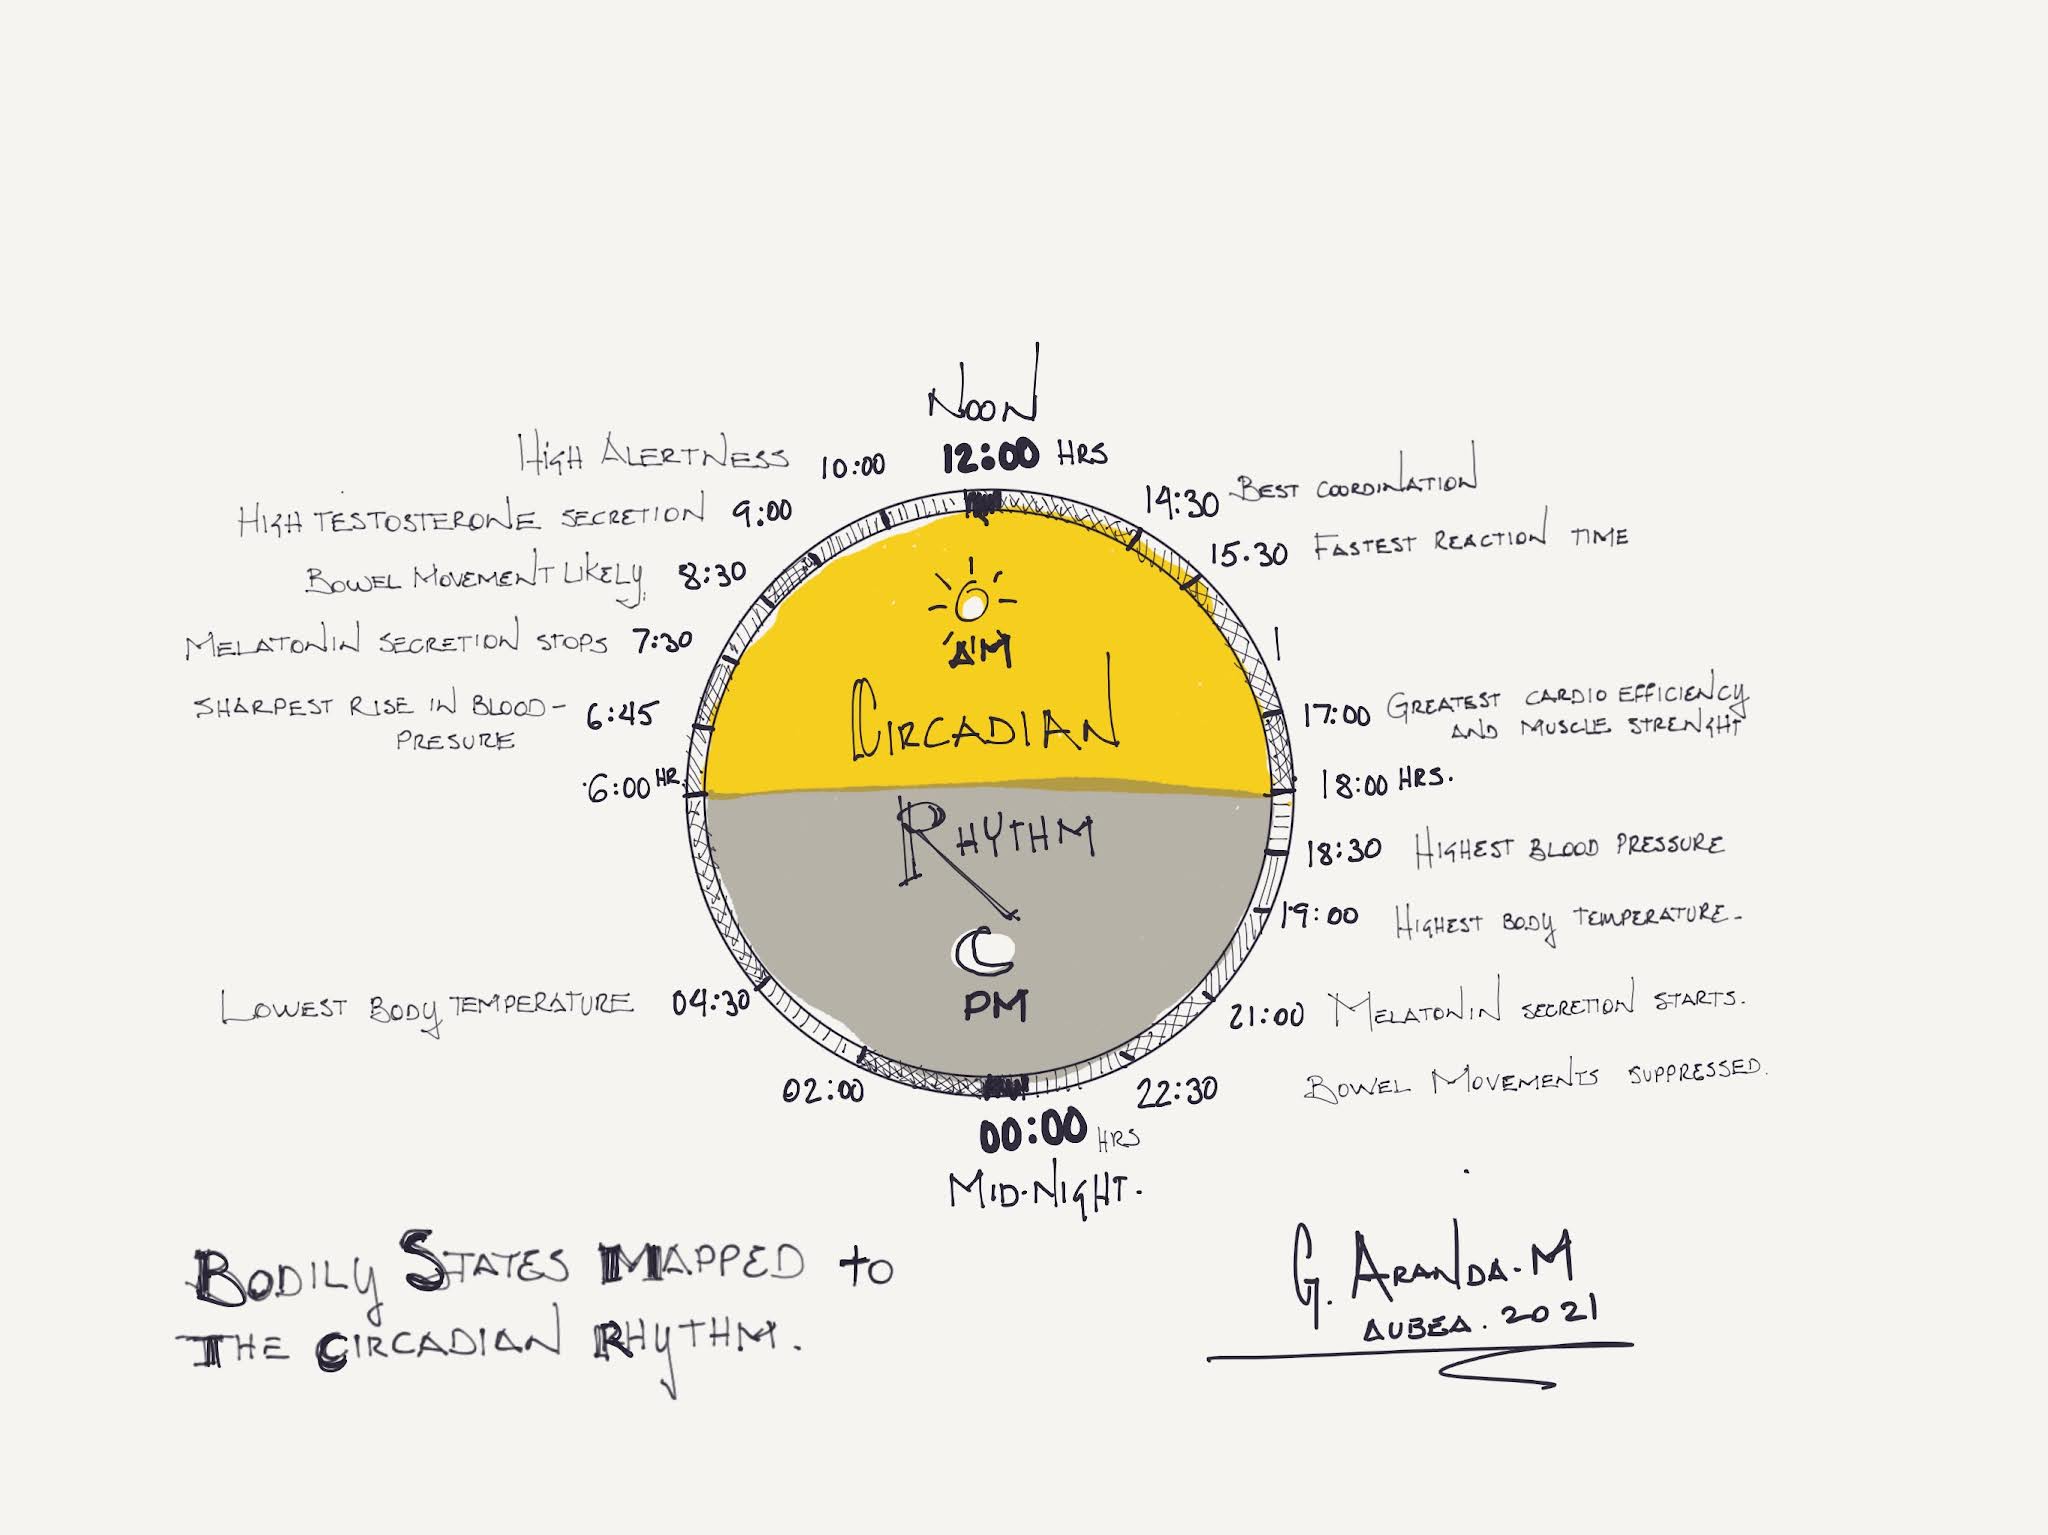 NOON
12:00 HRS
HIGH ALERTNESS 10:00
HIGH TESTOSTERONE SECRETION 9:00
BOWEL MOVEMENT LIKELY. 8:30
MELATONIN SECRETION STOPS 7:30
SHARPEST RISE IN BLOOD- 6:45
PRESURE
6:00 HR.
LOWEST BODY TEMPERATURE 04:30
02:00
14:30 BEST COORDINATION
15.30 FASTEST REACTION TIME
17:00 GREATEST CARDIO EFFICIENCY
AND MUSCLE STRENGHT
18:00 HRS.
18:30 HIGHEST BLOOD PRESSURE
19:00 HIGHEST BODY TEMPERATURE-
21:00 MELATONIN SECRETION STARTS.
22:30 BOWEL MOVEMENTS SUPPRESSED.
AM
CIRCADIAN
RHYTHM
PM
00:00 HRS
MID-NIGHT.
BODILY STATES MAPPED to
THE CIRCADIAN RHYTHM.
G. ARANDA-M
AUBEA. 2021